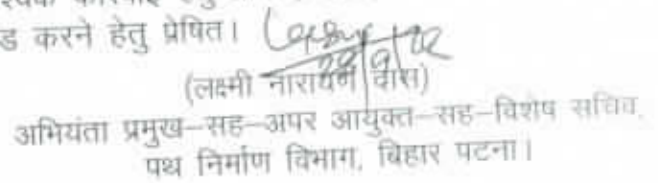 ड करने हेतु प्रेषित।
(लक्ष्मी नारायण दास)
अभियंता प्रमुख-सह-अपर आयुक्त-सह-विशेष सचिव,
पथ निर्माण विभाग, बिहार पटना।